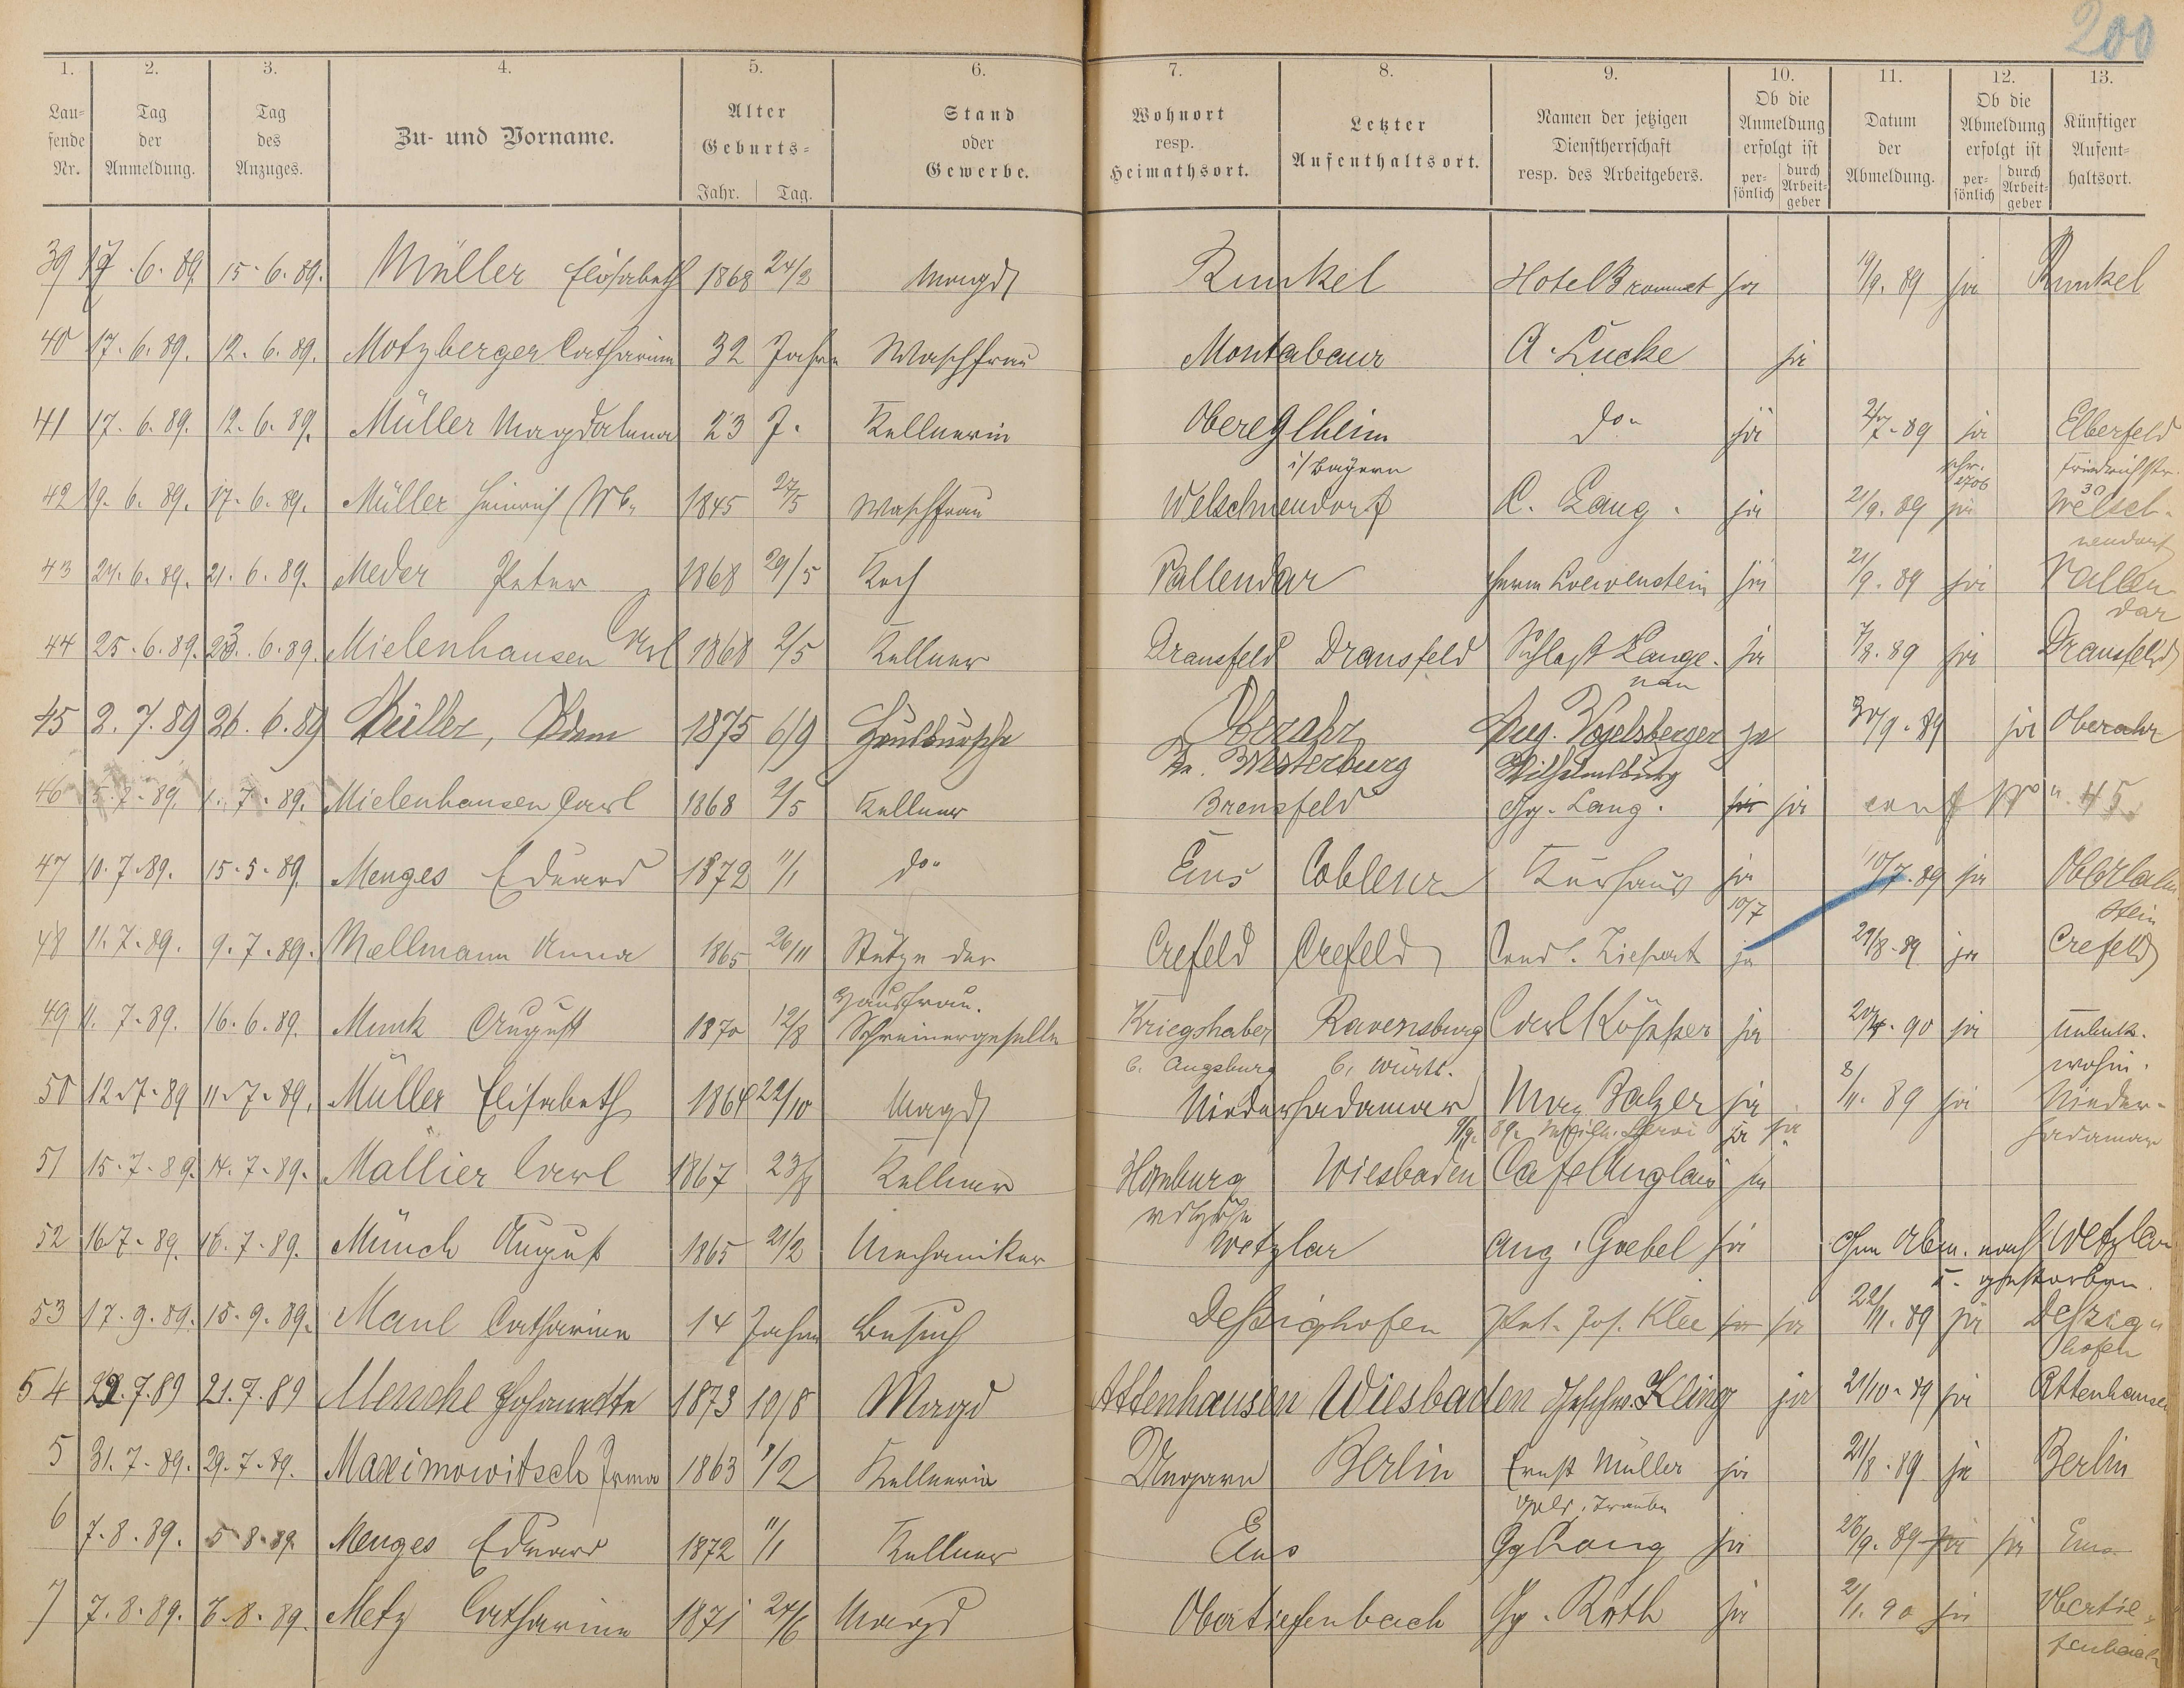 200
1. 2. 3. 4. 5. 6. 7. 8. 9. 10. 11. 12. 13.
Lau=
fende
Nr.
Tag
der
Anmeldung.
Tag
des
Anzuges.
Zu- und Vorname.
Alter
Geburts=
Jahr. Tag.
Stand
oder
Gewerbe.
Wohnort
resp.
Heimathsort.
Letzter
Aufenthaltsort.
Namen der jetzigen
Dienstherrschaft
resp. des Arbeitgebers.
Ob die
Anmeldung
erfolgt ist
per=
sönlich
durch
Arbeit=
geber
Datum
der
Abmeldung.
Ob die
Abmeldung
erfolgt ist
per=
sönlich
durch
Arbeit=
geber
Künftiger
Aufent=
haltsort.
39 17. 6. 89. 15. 6. 89. Müller Elisabeth 1868 24/2 Magd Runkel Hotel ja 19/9. 89 ja Runkel
40 17. 6. 89. 12. 6. 89. Motzberger Catharina 32 Jahre Waschfrau Montabaur A. Lucke ja
41 17. 6. 89. 12. 6. 89. Müller Magdalena 23 J. Kellnerin Obereglheim do. ja 2/7. 89 ja Elberfeld
i/ Bayern Friedrichstr.
30
42 19. 6. 89. 17. 6. 89. Müller Heinrich Wb. 1845 27/5 Waschfrau Welschneudorf C. Lang. ja 21/9. 89 ja Welsch-
neudorf
43 24. 6. 89. 21. 6. 89. Meder Peter 1868 29/5 Koch Vallendar Herm Loewenstein ja 21/9. 89 ja Vallen
dar
44 25. 6. 89. 23. 6. 89. Mielenhausen Carl 1868 2/5 Kellner Dransfeld Dransfeld Schloß Lange- ja 7/8. 89 ja Dransfeld
nau
45 2. 7. 89 26. 6. 89 Müller, Adam 1875 6/9 Hausbursche Oberahr Aug. Vogelsberger ja 30/9. 89 ja Oberahr
Kr. Westerburg Wilhelmsburg
46 5. 7. 89. 1. 7. 89. Mielenhausen Carl 1868 2/5 Kellner Dransfeld Gg. Lang. ja ja conf No. 45.
47 10. 7. 89. 15. 5. 89. Menges Eduard 1872 11/1 do. Ems Coblenz Kurhaus ja 10/7. 89 ja Oberlahn
10/7 stein
48 11. 7. 89. 9. 7. 89. Mellmann Anna 1865 26/11 Stütze der Crefeld Crefeld ja 29/8. 89 ja Crefeld
Hausfrau.
49 11. 7. 89. 16. 6. 89. Munk August 1870 12/8 Schreinergeselle Kriegshaber Ravensburg Carl ja 90 ja Unbek.
b. Augsburg b. Württ. wohin.
50 12. 7. 89 11. 7. 89. Müller Elisabeth 1864 22/10 Magd Niederhadamar Max Balzer ja 8/11. 89 ja Nieder-
ja ja hadamar
51 15. 7. 89. 14. 7. 89. Mallier Carl 1867 23/8 Kellner Homburg Wiesbaden Cafe Anglais ja
52 16. 7. 89. 16. 7. 89. Münch August 1865 21/2 Mechaniker Wetzlar Aug. Goebel ja ohne Abm. nach Wetzlar
u. gestorben.
53 17. 9. 89. 15. 9. 89. Maul Catharine 14 Jahre Besuch Dessighofen Jos. Klee ja ja 22/11. 89 ja Dessig
hofen
54 22. 7. 89 21. 7. 89 Menche Johannette 1873 10/8 Magd Attenhausen Wiesbaden Geschw. Kling ja 21/10. 89 ja Attenhausen
5 31. 7. 89. 29. 7. 89. Maximowitsch Irma 1863 1/2 Kellnerin Ungarn Berlin Ernst Müller ja 21/8. 89 ja Berlin
Traube
6 7. 8. 89. 5. 8. 89. Menges Eduard 1872 11/1 Kellner Ems Gg Lang ja 26/9. 89 ja ja Ems
7 7. 8. 89. 6. 8. 89. Metz Catharine 1871 24/6 Magd Obertiefenbach Gg. Roth ja 2/1. 90 ja Obertie
fenbach